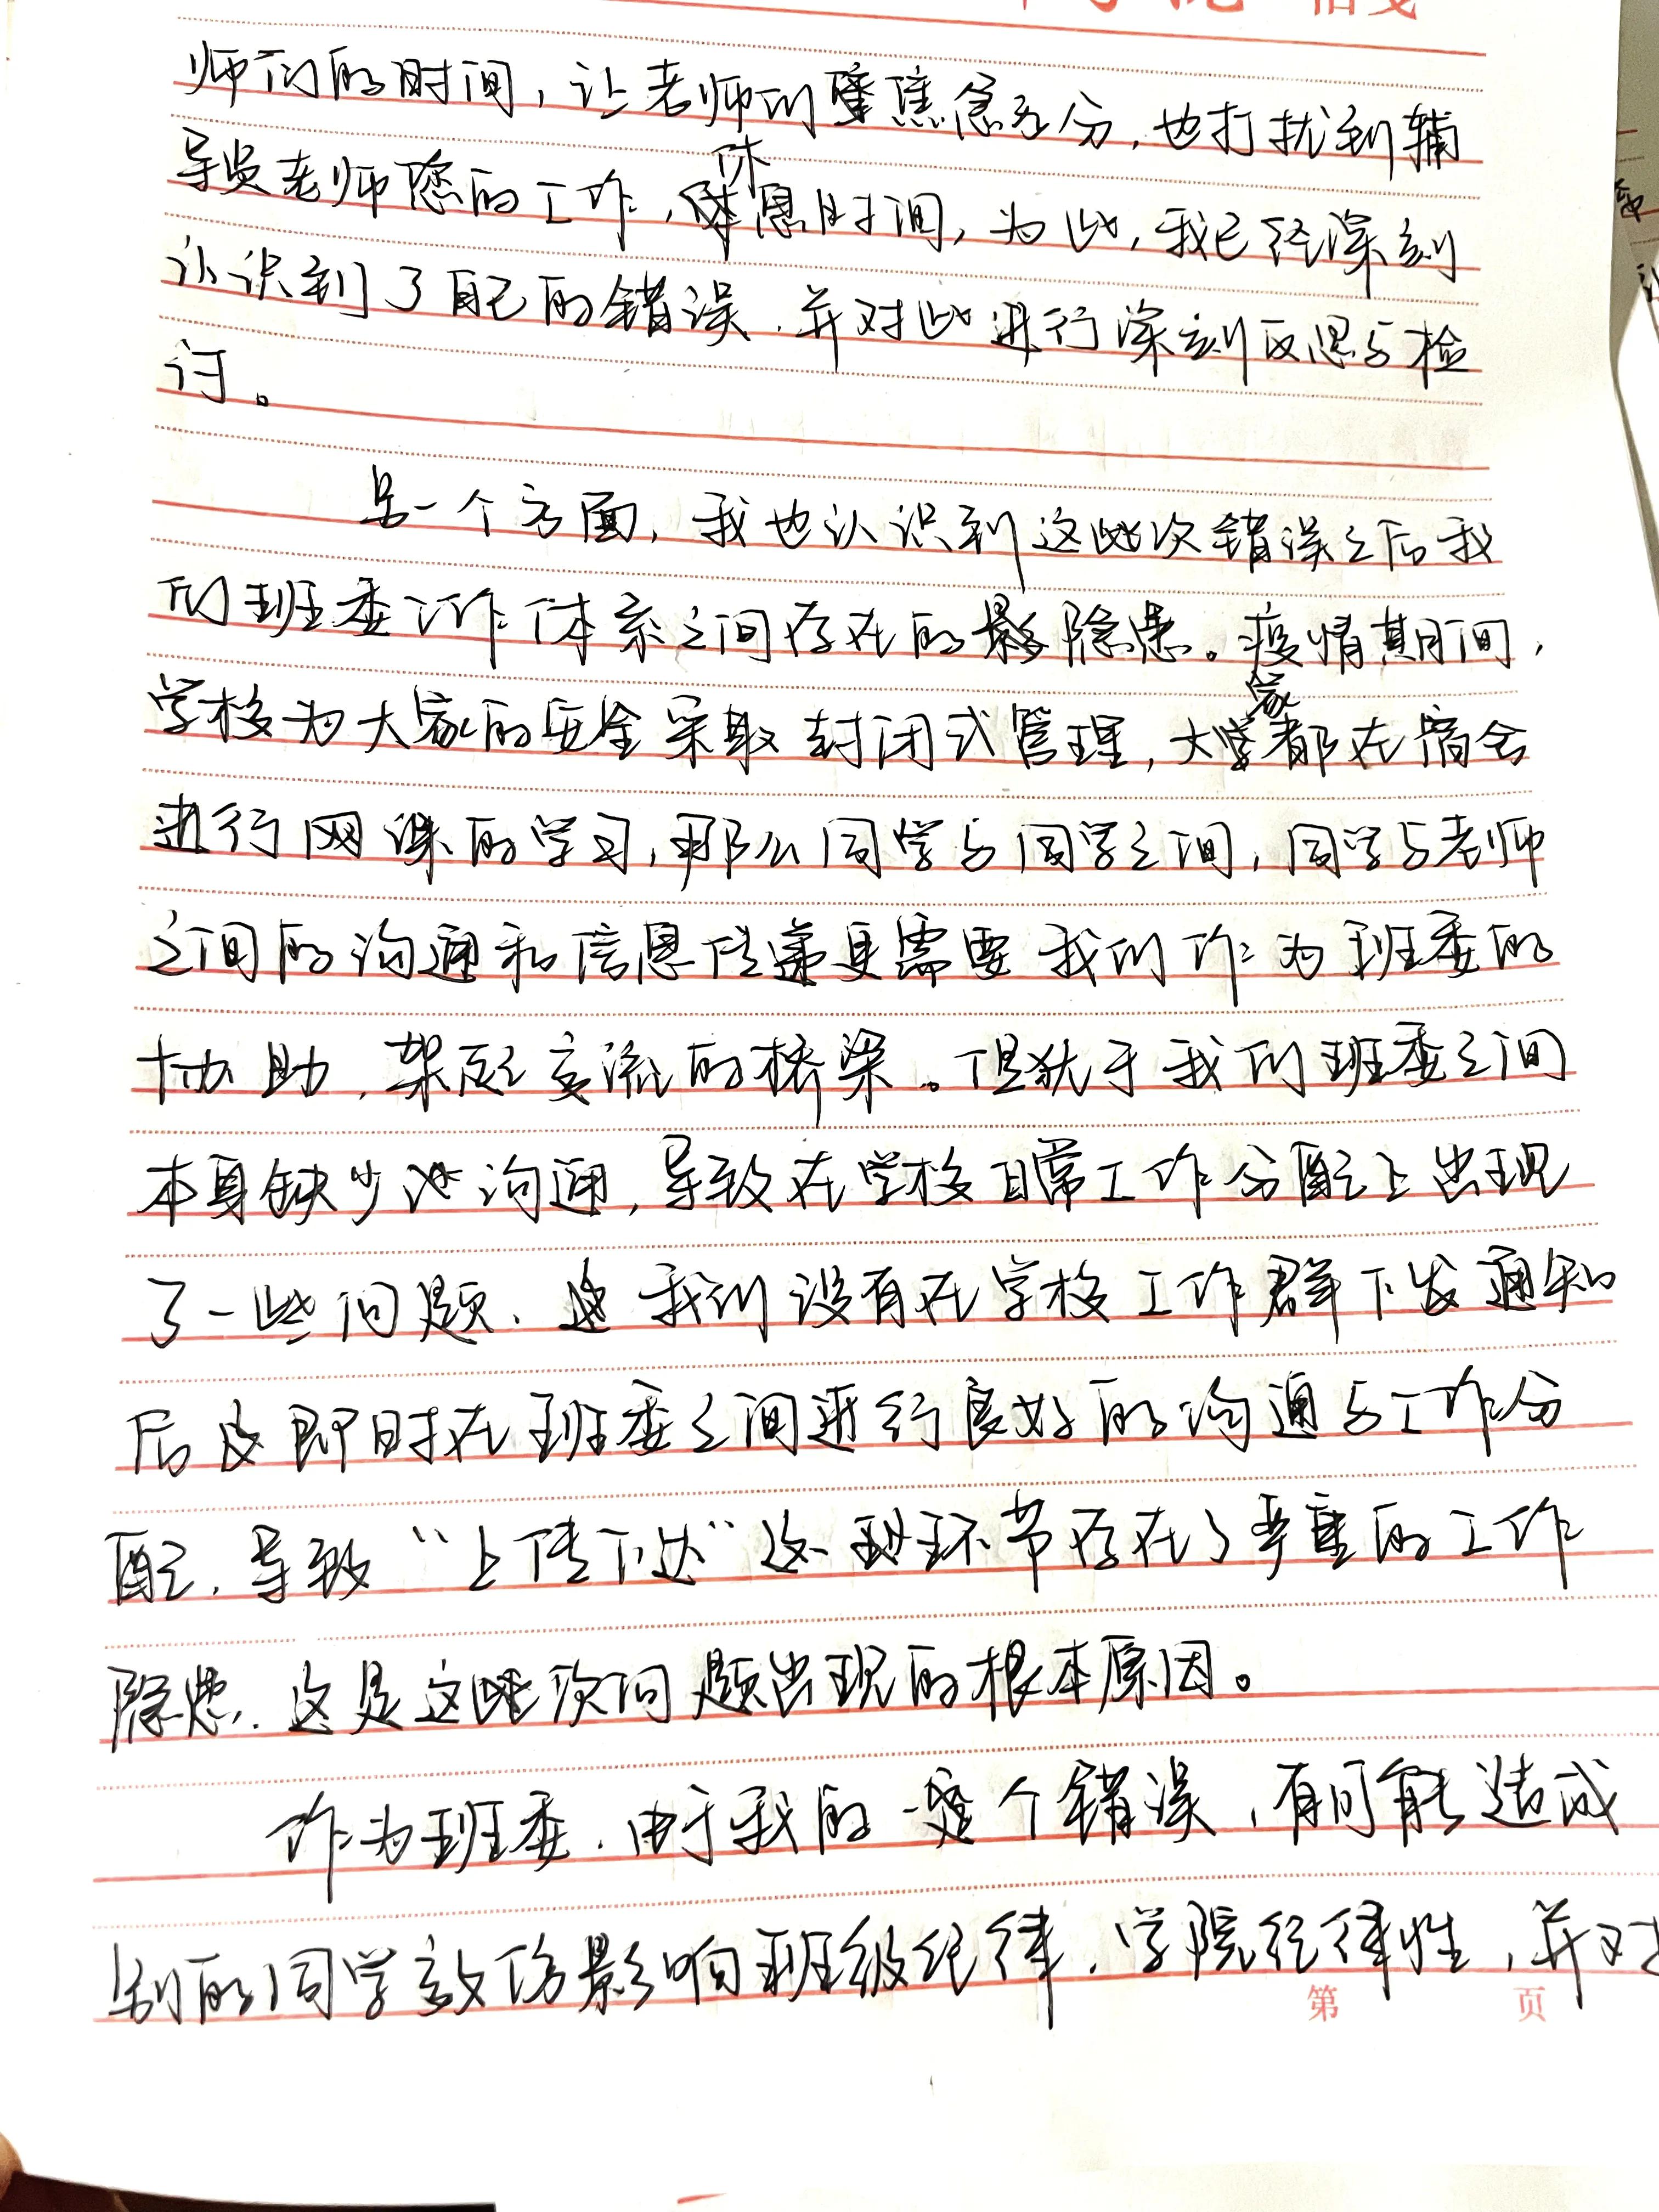 师们的时间，让老师们焦急万分，也打扰到辅
导员老师您的工作，休息时间，为此，我已经深刻
认识到了自己的错误，并对此进行深刻反思与检
讨。
另一个方面，我也认识到这此次错误之后我
们班委工作体系之间存在的隐患。疫情期间，
学校为大家的安全采取封闭式管理，大家都在宿舍
进行网课的学习，那么同学与同学之间，同学与老师
之间的沟通和信息传递更需要我们作为班委的
协助，架起交流的桥梁。但犹于我们班委之间
本身缺少沟通，导致在学校日常工作分配上出现
了一些问题，我们没有在学校工作群下发通知
后即时在班委之间进行良好的沟通与工作分
配，导致“上传下达”这环节存在了严重的工作
隐患，这是这此次问题出现的根本原因。
作为班委，由于我的一个错误，有可能造成
别的同学效仿影响班级纪律，学院纪律性，并对
第 页